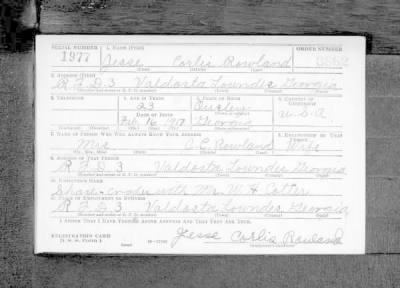 SERIAL NUMBER 1. NAME (Print) ORDER NUMBER
1977 Jesse Corlis Rowland
(First) (Middle) (Last)
2. ADDRESS (Print)
R.F.D. 3 Valdosta Lowndes Georgia
3. TELEPHONE 4. AGE IN YEARS 5. PLACE OF BIRTH 6. COUNTRY OF CITIZENSHIP
23
DATE OF BIRTH
Feb. 1917 Georgia U.S.A
7. NAME OF PERSON WHO WILL ALWAYS KNOW YOUR ADDRESS 8. RELATIONSHIP OF THAT PERSON
Mrs. Rowland Wife
9. ADDRESS OF THAT PERSON
R.F.D. 3 Valdosta Lowndes Georgia
10. EMPLOYER'S NAME
Share-cropper with Mr. W. H.
11. PLACE OF EMPLOYMENT OR BUSINESS
R.F.D. 3 Valdosta Lowndes Georgia
I AFFIRM THAT I HAVE VERIFIED ABOVE ANSWERS AND THAT THEY ARE TRUE.
REGISTRATION CARD
D. S. S. FORM 1 Jesse Corlis Rowland